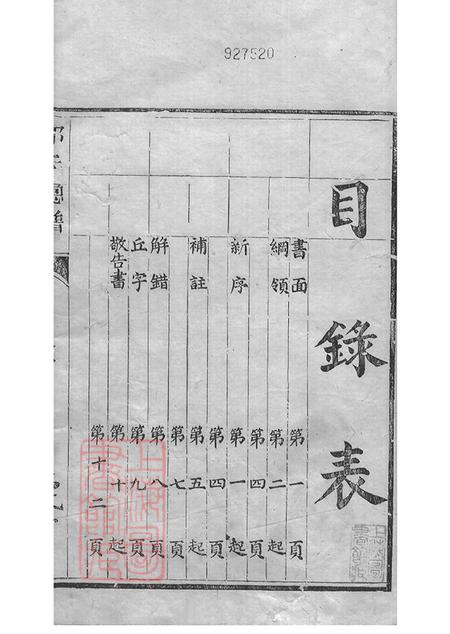 927520
目錄表
書面 第一頁
綱領 第二起
第四頁
新序 第一起
第四頁
補註 第五起
第七頁
解錯 第八頁
丘字 第九頁
敬告書 第十起
第十二頁
上海圖書館藏